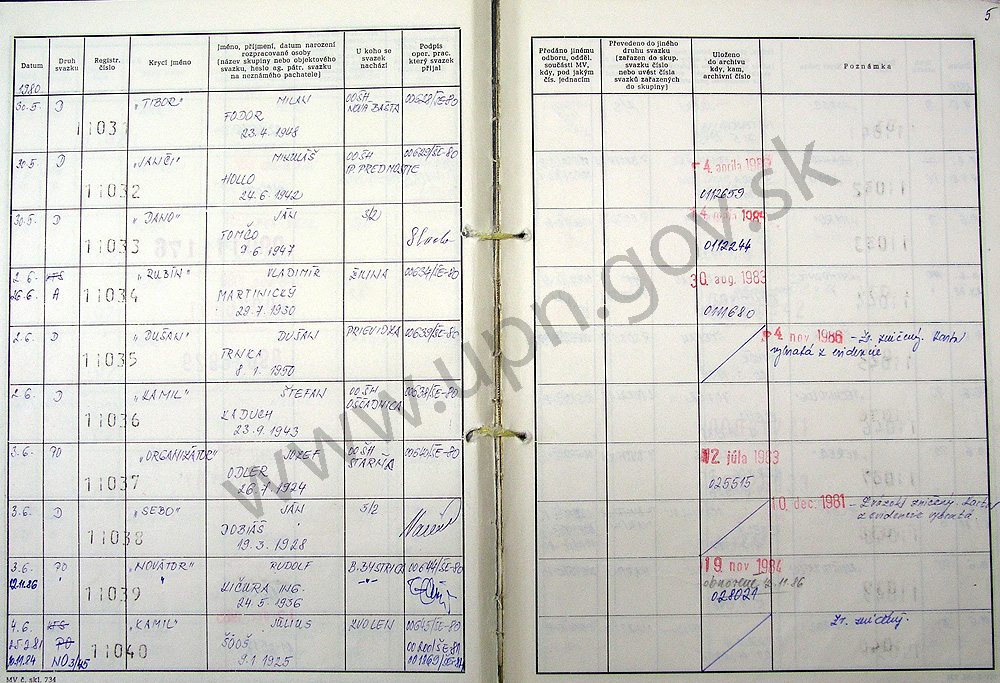 5
Datum
Druh svazku
Registr. číslo
Krycí jméno
Jméno, příjmení, datum narození rozpracované osoby (název skupiny nebo objektového svazku, heslo ag. pátr. svazku na neznámého pachatele)
U koho se svazek nachází
Podpis oper. prac. který svazek přijal
Předáno jinému odboru, odděl. součásti MV, kdy, pod jakým čís. jednacím
Převedeno do jiného druhu svazku (zařazen do skup. svazku číslo nebo uvést čísla svazků zařazených do skupiny)
Uloženo do archivu kdy, kam, archivní číslo
Poznámka
1980.
30.5. D 11031 "TIBOR" MILAN FODOR 23.4.1948 OOŠH NOVÁ BAŠTA 00628/ŠE-80
30.5. D 11032 MIKULÁŠ HOLLO 24.6.1942 OOŠH IP. PREDMOSTIE 00629/ŠE-80 4. apríla 0112659
30.5. D 11033 "DANO" JÁN TOMČO 9.6.1947 S/2 0112244
2.6. 26.6. A 11034 "RUBÍN" VLADIMÍR MARTINICKÝ 29.7.1930 ŽILINA 00634/ŠE-80 30 aug. 1983 0111680
2.6. D 11035 "DUŠAN" DUŠAN TRNKA 8.1.1950 PRIEVIDZA 00639/ŠE-80 4 nov 1986 - Zv. zničený. vyňatá z evidencie
2.6. D 11036 "KAMIL" ŠTEFAN KADUCH 23.9.1943 OOŠH OŠČADNICA 00638/ŠE-80
3.6. PO 11037 "ORGANIZÁTOR" JOZEF ODLER 26.7.1924 OOŠH STARIŇA 00640/ŠE-80 12 júla 1983 025515
3.6. D 11038 "SEBO" JÁN DOBIÁŠ 19.3.1928 S/2 10. dec. 1981 - zničený. z evidencie vyňatá
3.6. PO 12.11.86 " 11039 "NOVÁTOR" " RUDOLF LIČURA ING. 24.5.1936 B. BYSTRICA -"- 00644/ŠE-80 19 nov 1984 obnovené 12.11.86 028021
4.6. KTS 25.2.81 PO NO3/45 11040 "KAMIL" JÚLIUS ŠÓOŠ 9.1.1925 ZVOLEN 00645/ŠE-80 00200/ŠE-81 Zv. zničený.
MV č. skl. 734
www.upn.gov.sk